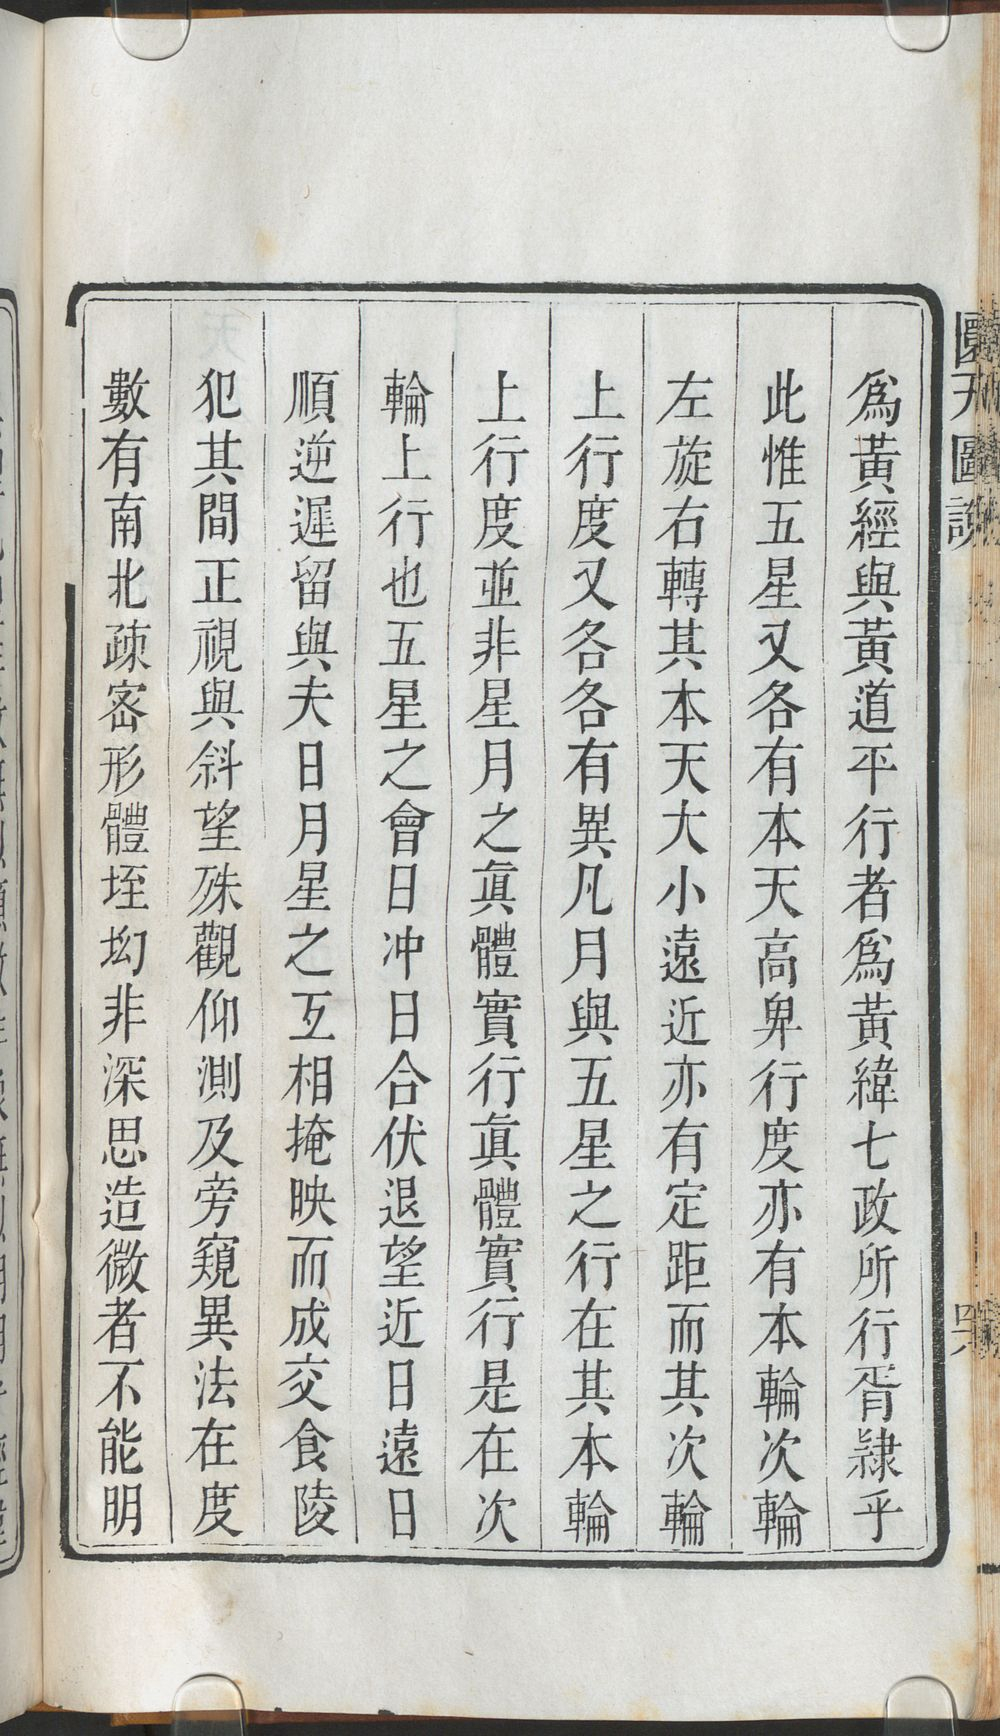 爲黃經與黃道平行者爲黃緯七政所行胥隸乎
此惟五星又各有本天高卑行度亦有本輪次輪
左旋右轉其本天大小遠近亦有定距而其次輪
上行度又各各有異凡月與五星之行在其本輪
上行度並非星月之眞體實行眞體實行是在次
輪上行也五星之會日冲日合伏退望近日遠日
順逆遲留與夫日月星之互相掩映而成交食陵
犯其間正視與斜望殊觀仰測及旁窺異法在度
數有南北疎宻形體垤㘭非深思造微者不能明
圜天圖說